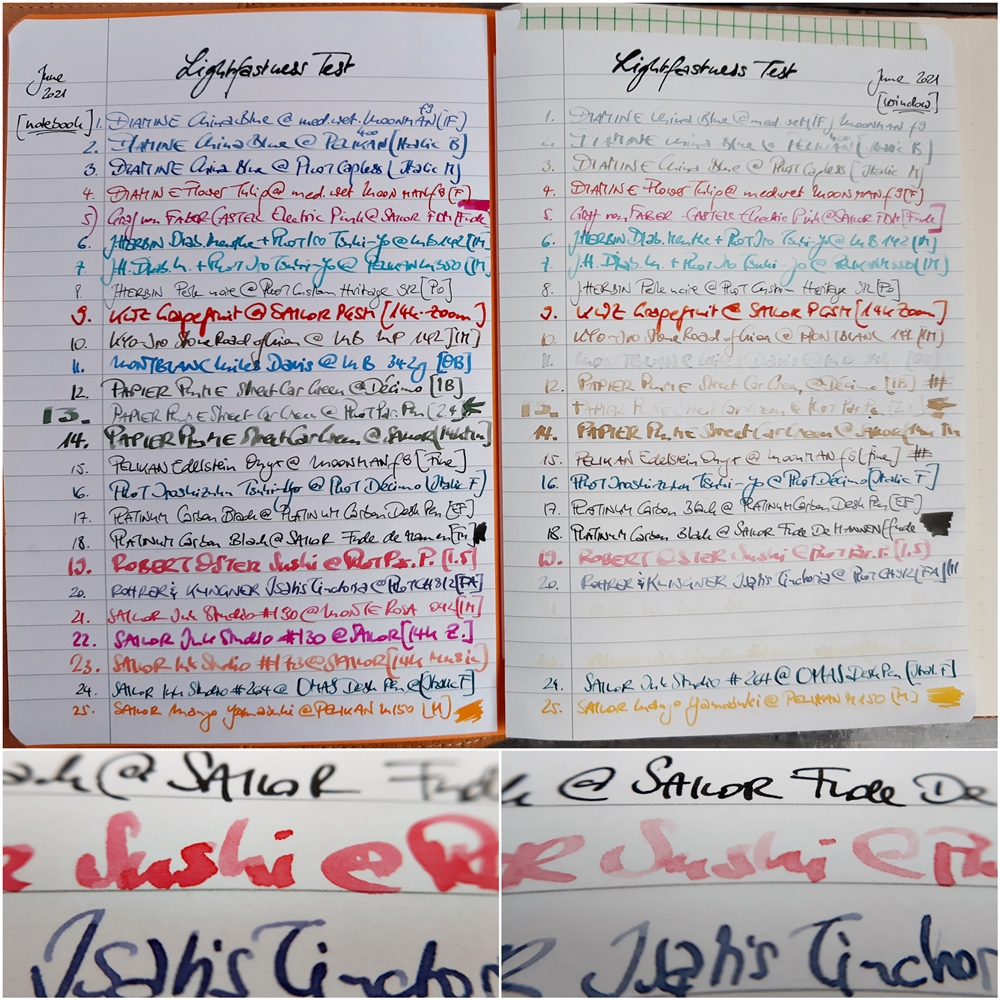 Lightfastness Test
June
2021
[notebook]
1. DIAMINE China Blue @ med.wet. MOONMAN f9 (IF)
2. DIAMINE China Blue @ PELIKAN 400 (Italic B)
3. DIAMINE China Blue @ PILOT Capless (Italic M)
4. DIAMINE Flower Tulip @ med. wet MOONMAN f9 (F)
5) Graf von FABER CASTELL Electric Pink @ SAILOR FDM [Fude
6. J.HERBIN Diab. Menthe + PILOT Iro Tsuki-Yo @ MB 142 [M]
7. J.H. Diab. M. + PILOT Iro Tsuki-Yo @ PELIKAN M [M]
8. J.HERBIN Perle noire @ PILOT Custom Heritage 912 [Po]
9. KWZ Grapefruit @ SAILOR PGSM [14k-Zoom]
10. KYO-Iro Stone Road of Gion @ MB MP 142 [M]
11. MONTBLANC Miles Davis @ MB 342g [OB]
12. PAPIER PLUME Street Car Green @ Décimo [1B]
13. PAPIER PLUME Street Car Green @ PILOT Par. Pen [2.4]
14. PAPIER PLUME Street Car Green @ SAILOR [14k
15. PELIKAN Edelstein Onyx @ MOONMAN f8 [Fine]
16. PILOT Iroshizuku Tsuki-Yo @ PILOT Décimo (Italic F]
17. PLATINUM Carbon Black @ PLATINUM Carbon Desk Pen [EF]
18. PLATINUM Carbon Black @ SAILOR Fude de Mannen
19. ROBERT OSTER Sushi @ PILOT P. P. [1.5]
20. ROHRER & KLINGNER Isatis Tinctoria @ PILOT CH912 [FA]
21. SAILOR Ink Studio #130 @ MONTE ROSA 042 [M]
22. SAILOR Ink Studio #130 @ SAILOR [14k Z.]
23. SAILOR Ink Studio #173 @ SAILOR [14k Music]
24. SAILOR Ink Studio #264 @ OMAS Desk Pen @ (Italic F]
25. SAILOR Manyo Yamabuki @ PELIKAN M150 [M]
Lightfastness Test
June
2021
[window]
1. DIAMINE China Blue @ med. wet (IF) MOONMAN f9
2. DIAMINE China Blue @ PELIKAN 400 (Italic B
3. DIAMINE China Blue @ PILOT Capless [Italic M]
4. DIAMINE Flower Tulip @ med wet MOONMAN f9 [F]
5. Graf von FABER-CASTELL Electric Pink @ SAILOR FDM [Fude]
6. J.HERBIN Diab. Menthe + PILOT Iro Tsuki-Yo @ MB 142 [M]
7. J.H. Diab. M. + PILOT Iro Tsuki-Yo @ PELIKAN M [M]
8. J.HERBIN Perle noire @ PILOT Custom Heritage 912 [Po]
9. KWZ Grapefruit @ SAILOR PGSM [14k-Zoom]
10. KYO-Iro Stone Road of Gion @ MONTBLANC [M]
11. MONTBLANC Miles Davis @
12. PAPIER PLUME Street Car Green @ Décimo [1B] #
13. PAPIER PLUME Street Car Green @ PILOT Par. Pen
14. PAPIER PLUME Street Car Green @ SAILOR [14k
15. PELIKAN Edelstein Onyx @ MOONMAN f8 [fine] #
16. PILOT Iroshizuku Tsuki-Yo @ PILOT Décimo (Italic F]
17. PLATINUM Carbon Black @ PLATINUM Carbon Desk Pen [EF]
18. PLATINUM Carbon Black @ SAILOR Fude De MANNEN [fude
19. ROBERT OSTER Sushi @ PILOT Par. P. [1.5]
20. ROHRER & KLINGNER Isatis Tinctoria @ PILOT CH912 [FA]
24. SAILOR Ink Studio #264 @ OMAS Desk Pen [Ital. F]
25. SAILOR Manyo Yamabuki @ PELIKAN M150 [M]
@ SAILOR Fude
Sushi @
Isatis Tinctor
@ SAILOR Fude De
R Sushi @
Isatis Tinctor